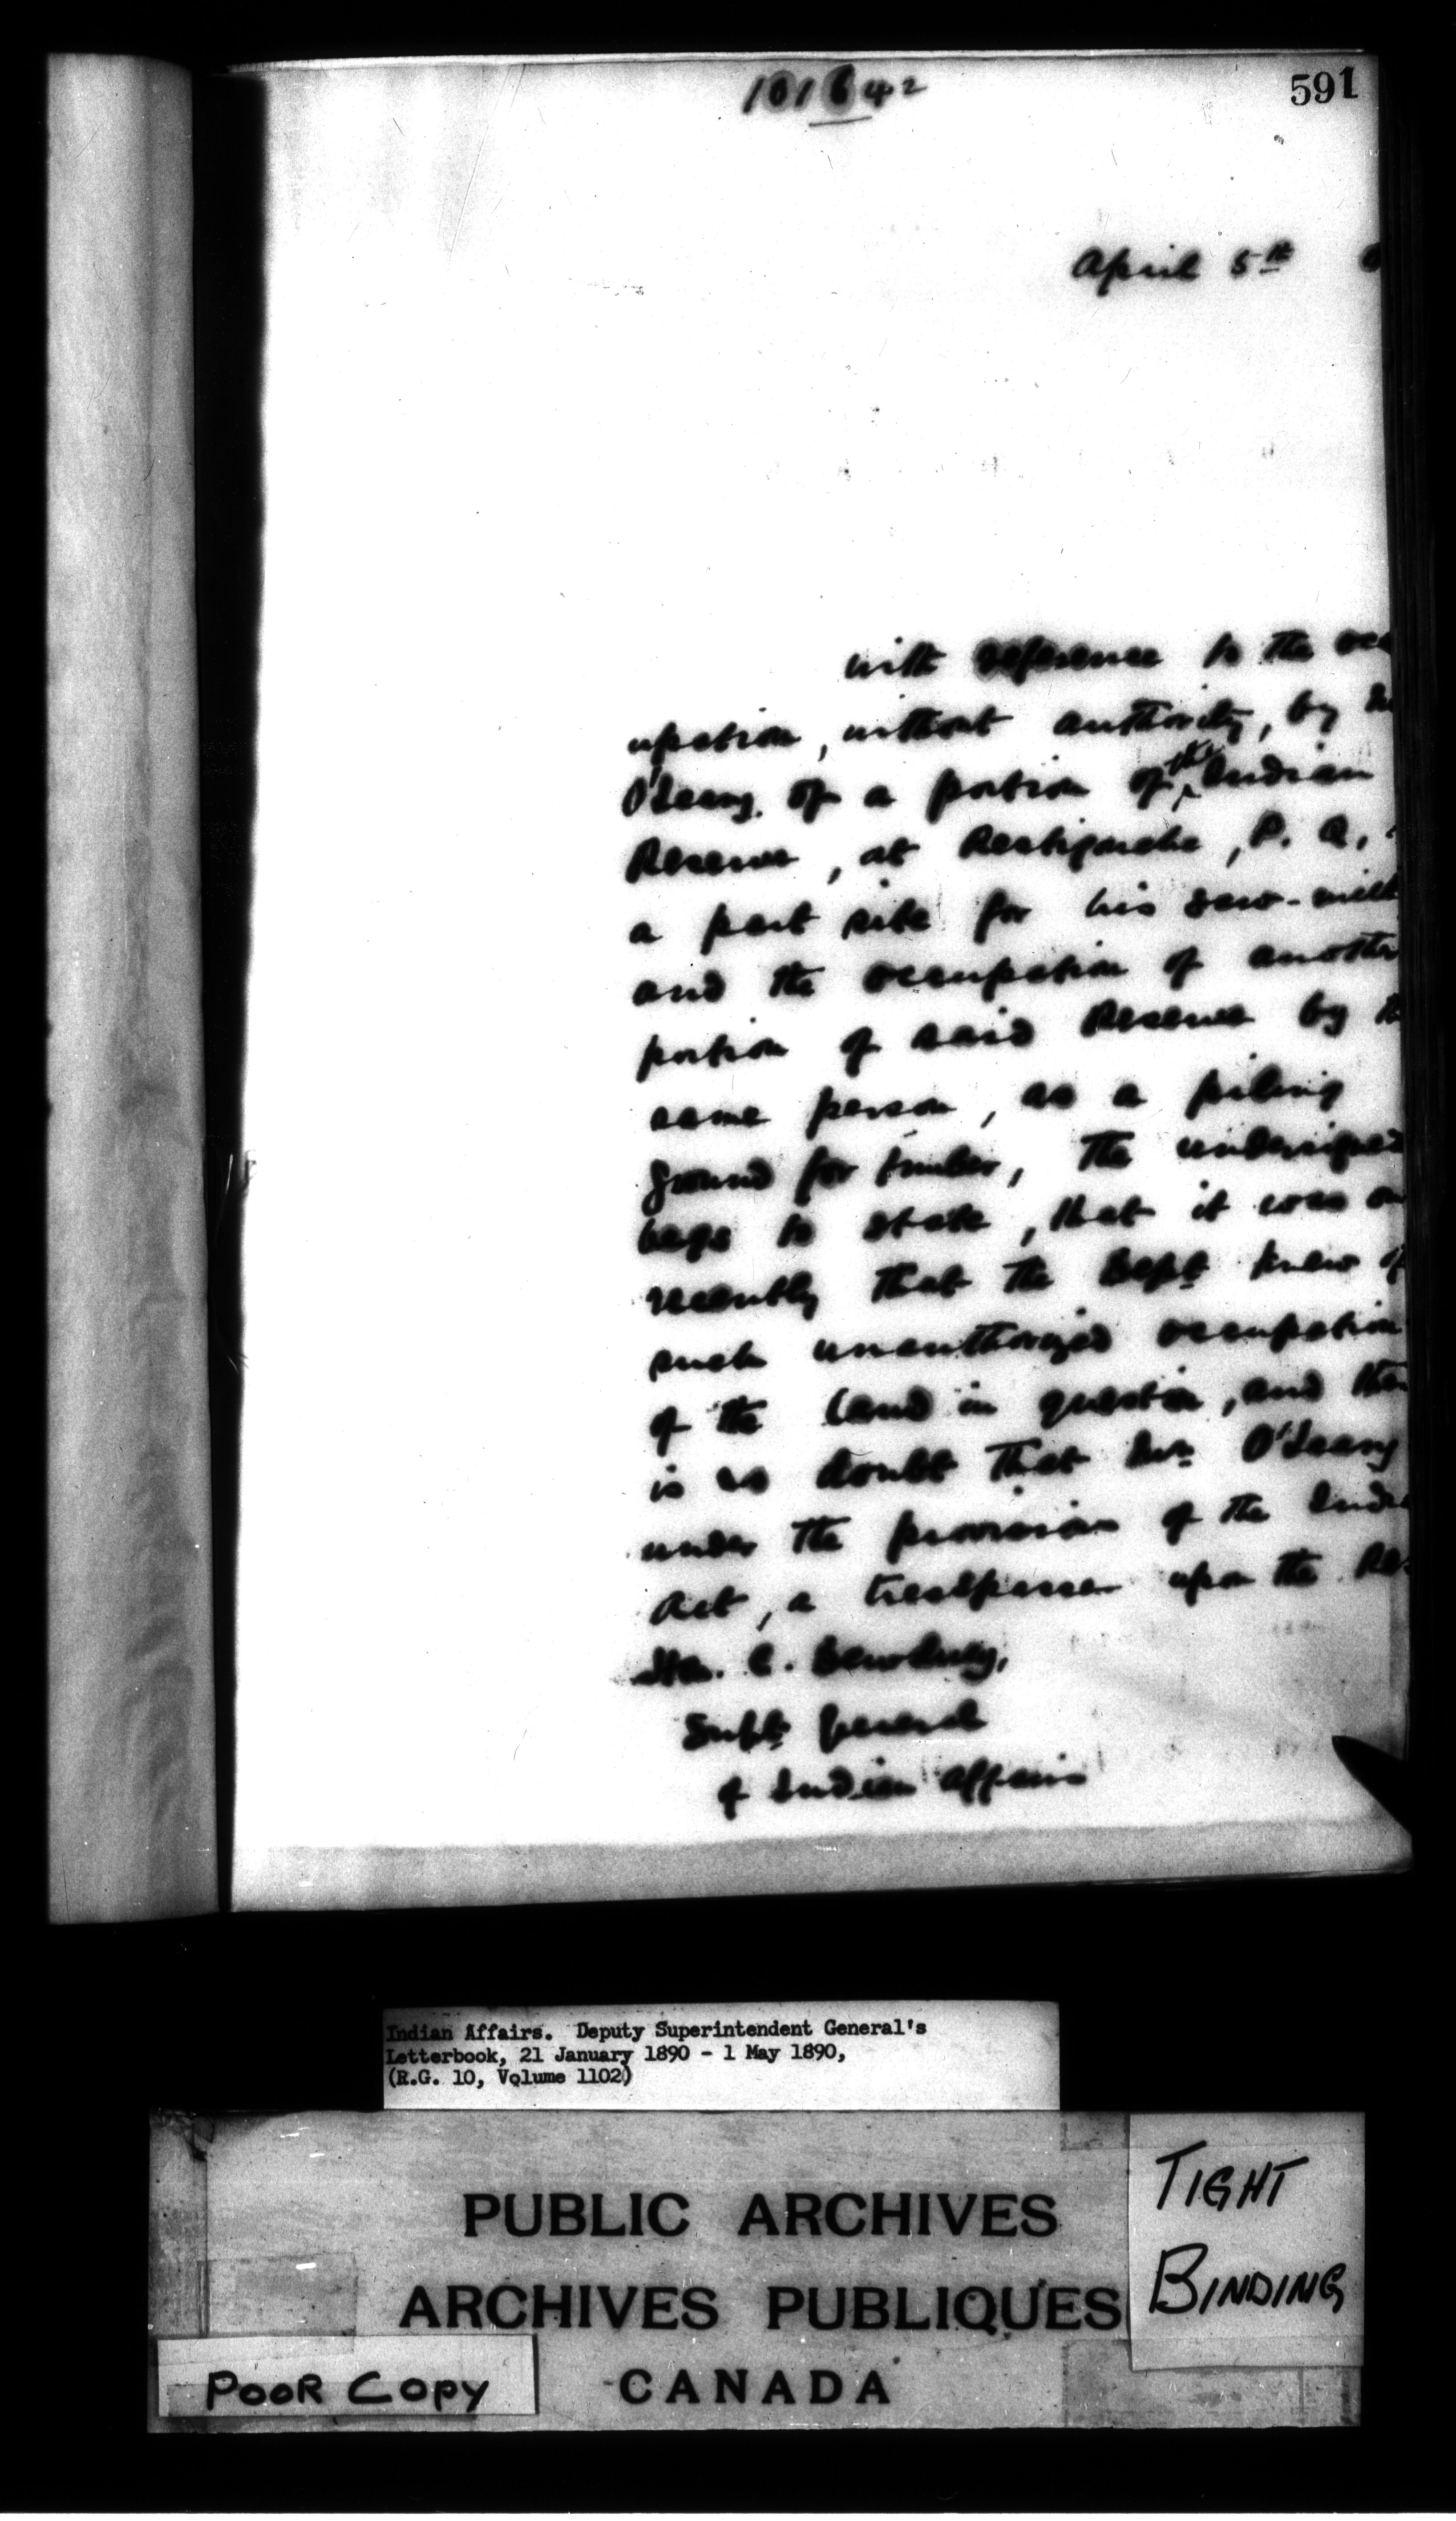 101642
591
April 5th
with reference to the occ
upation, without authority, by Mr
O'Leary, of a portion of the Indian
Reserve, at Restigouche, P. Q.,
a part site for his saw-mill
and the occupation of another
portion of said Reserve by the
same person, as a piling
ground for timber, the undersigned
begs to state, that it was on
recently that the Dept knew of
such unauthorized occupation
of the land in question, and there
is no doubt that Mr. O'Leary
under the provisions of the Indian
Act, a trespasser upon the Re-
Hon. E. Dewdney,
Supt General
of Indian Affairs
Indian Affairs. Deputy Superintendent General's
Letterbook, 21 January 1890 - 1 May 1890,
(R.G. 10, Volume 1102)
PUBLIC ARCHIVES
ARCHIVES PUBLIQUES
CANADA
TIGHT
BINDING
POOR COPY